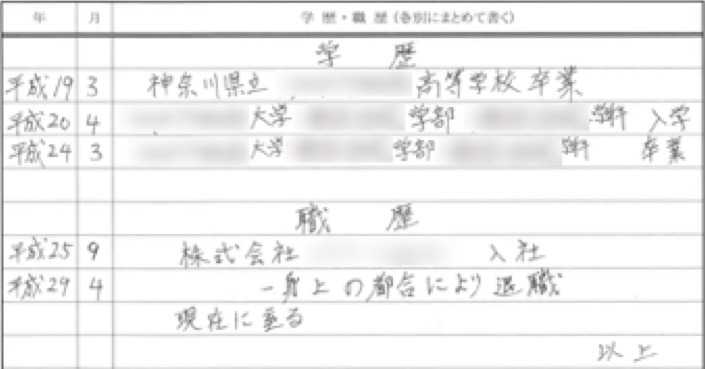 年 月 学歴・職歴（各別にまとめて書く）
学 歴
平成19 3 神奈川県立 高等学校 卒業
平成20 4 大学 学部 学科 入学
平成24 3 大学 学部 学科 卒業
職 歴
平成25 9 株式会社 入社
平成29 4 一身上の都合により退職
現在に至る
以上